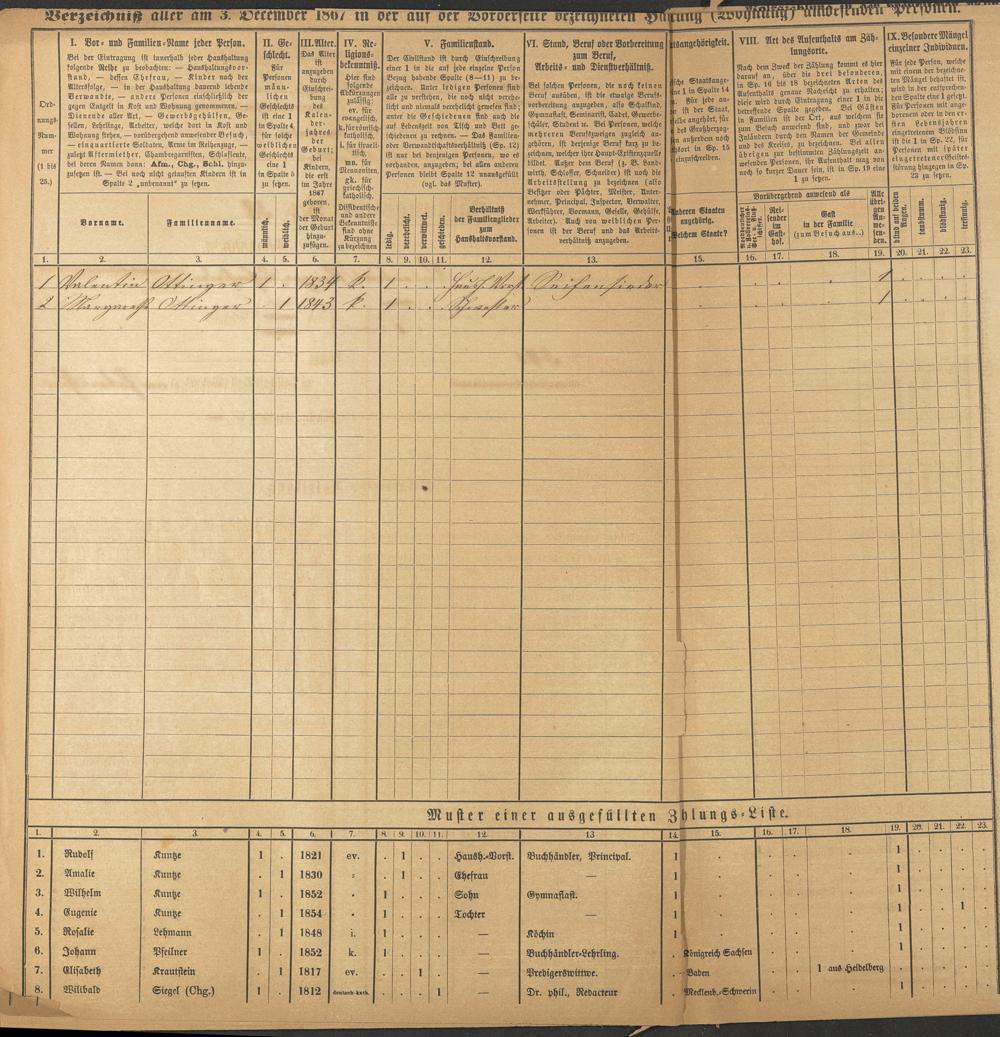 Verzeichniß aller am 3. December 1867 in der auf der Vorderseite bezeichneten Haltung (Wohnung) anwesenden Personen.
Ord-
nungs-
Num-
mer
(1 bis
25.)
I. Vor- und Familien-Name jeder Person.
Bei der Eintragung ist innerhalb jeder Haushaltung
folgende Reihe zu beobachten: — Haushaltungsvor-
stand, — dessen Ehefrau, — Kinder nach der
Altersfolge, — in der Haushaltung dauernd lebende
Verwandte, — andere Personen einschließlich der
gegen Entgelt in Kost und Wohnung genommenen, —
Dienende aller Art, — Gewerbsgehülfen, Ge-
sellen, Lehrlinge, Arbeiter, welche dort in Kost und
Wohnung stehen, — vorübergehend anwesender Besuch,
— einquartierte Soldaten, Arme im Reihenzuge, —
zuletzt Aftermiether, Chambregarnisten, Schlafleute,
bei deren Namen dann: Afm., Chg., Schl. hinzu-
zusetzen ist. — Bei noch nicht getauften Kindern ist in
Spalte 2 „unbenannt" zu setzen.
Vorname. Familienname.
II. Ge-
schlecht.
Für
Personen
männ-
lichen
Geschlechts
ist eine 1
in Spalte 4,
für solche
weiblichen
Geschlechts
eine 1
in Spalte 5
zu setzen.
männlich. weiblich.
III. Alter.
Das Alter
ist
anzugeben
durch
Einschrei-
bung
des
Kalen-
der-
jahres
der
Geburt;
bei
Kindern,
die erst
im Jahre
1867
geboren,
ist
der Monat
der Geburt
hinzu-
zufügen.
IV. Re-
ligions-
bekenntniß.
Hier sind
folgende
Abkürzungen
zulässig:
ev. für
evangelisch,
k. für römisch-
katholisch,
i. für israeli-
tisch,
mn. für
Mennoniten,
gk. für
griechisch-
katholisch.
Dissidentische
und andere
Bekenntnisse
sind ohne
Kürzung
zu bezeichnen
V. Familienstand.
Der Civilstand ist durch Einschreibung
einer 1 in die auf jede einzelne Person
Bezug habende Spalte (8—11) zu be-
zeichnen. Unter ledigen Personen sind
alle zu verstehen, die noch nicht verehe-
licht und niemals verehelicht gewesen sind;
unter die Geschiedenen sind auch die
auf Lebenszeit von Tisch und Bett ge-
schiedenen zu rechnen. — Das Familien-
oder Verwandtschaftsverhältniß (Sp. 12)
ist nur bei denjenigen Personen, wo es
vorhanden, anzugeben; bei allen anderen
Personen bleibt Spalte 12 unausgefüllt
(vgl. das Muster).
ledig. verehelicht. verwittwet. geschieden.
Verhältniß
der Familienglieder
zum
Haushaltsvorstand.
VI. Stand, Beruf oder Vorbereitung
zum Beruf,
Arbeits- und Dienstverhältniß.
Bei solchen Personen, die noch keinen
Beruf ausüben, ist die etwaige Berufs-
vorbereitung anzugeben, also Schulkind,
Gymnasiast, Seminarist, Cadet, Gewerbe-
schüler, Student ꝛc. Bei Personen, welche
mehreren Berufszweigen zugleich an-
gehören, ist derjenige Beruf kurz zu be-
zeichnen, welcher ihre Haupt-Existenzquelle
bildet. Außer dem Beruf (z. B. Land-
wirth, Schlosser, Schneider) ist noch die
Arbeitsstellung zu bezeichnen (also
Besitzer oder Pächter, Meister, Unter-
nehmer, Principal, Inspector, Verwalter,
Werkführer, Vormann, Geselle, Gehülfe,
Arbeiter). Auch von weiblichen Per-
sonen ist der Beruf und das Arbeits-
verhältniß anzugeben.
tsangehörigkeit.
anderen Staaten
angehörig.
Welchem Staate?
VIII. Art des Aufenthalts am Zäh-
lungsorte.
Nach dem Zweck der Zählung kommt es hier
darauf an, über die drei besonderen,
in Sp. 16 bis 18 bezeichneten Arten des
Aufenthalts genaue Nachricht zu erhalten;
diese wird durch Eintragung einer 1 in die
betreffenden Spalten gegeben. Bei Gästen
in Familien ist der Ort, aus welchem sie
zum Besuch anwesend sind, und zwar bei
Inländern durch den Namen der Gemeinde
und des Kreises, zu bezeichnen. Bei allen
übrigen zur bestimmten Zählungszeit an-
wesenden Personen, ihr Aufenthalt mag von
noch so kurzer Dauer sein, ist in Sp. 19 eine
1 zu setzen.
Vorübergehend anwesend als
Rei-
sender
im
Gast-
hof.
Gast
in der Familie
(zum Besuch aus..)
Alle
übri-
gen
An-
we-
sen-
den.
IX. Besondere Mängel
einzelner Individuen.
Für jede Person, welche
mit einem der bezeichne-
ten Mängel behaftet ist,
wird in der entsprechen-
den Spalte eine 1 gesetzt.
Für Personen mit ange-
bornem oder in den er-
sten Lebensjahren
eingetretenem Blödsinn
ist die 1 in Sp. 22, für
Personen mit später
eingetretener Geistes-
störung hingegen in Sp.
23 zu setzen.
blind auf beiden Augen. taubstumm. blödsinnig. irrsinnig.
1. 2. 3. 4. 5. 6. 7. 8. 9. 10. 11. 12. 13. 15. 16. 17. 18. 19. 20. 21. 22. 23.
1 Valentin Ottinger 1 . 1834 k. 1 . . . Haush. Vorst. Seifensieder . 1
2 Margareth Ottinger . 1 1843 k. 1 . . . Schwester . 1
Muster einer ausgefüllten Zählungs-Liste.
1. 2. 3. 4. 5. 6. 7. 8. 9. 10. 11. 12. 13 14. 15. 16. 17. 18. 19. 20. 21. 22. 23.
1. Rudolf Kuntze 1 . 1821 ev. . 1 . . Haush.-Vorst. Buchhändler, Principal. 1 . . . . 1 . . . .
2. Amalie Kuntze . 1 1830 " . 1 . . Ehefrau — 1 . . . . 1 . . . .
3. Wilhelm Kuntze 1 . 1852 " 1 . . . Sohn Gymnasiast. 1 . . . . 1 . . . .
4. Eugenie Kuntze . 1 1854 " 1 . . . Tochter — 1 . . . . 1 . . 1 .
5. Rosalie Lehmann . 1 1848 i. 1 . . . — Köchin 1 . . . . 1 . . . .
6. Johann Pfeilner 1 . 1852 k. 1 . . . — Buchhändler-Lehrling. . Königreich Sachsen . . . 1 . . . .
7. Elisabeth Krautstein . 1 1817 ev. . . 1 . — Predigerswittwe. . Baden . . 1 aus Heidelberg . . . . .
8. Wilibald Siegel (Chg.) 1 . 1812 deutsch-kath. . . . 1 — Dr. phil., Redacteur . Mecklenb.-Schwerin . . . 1 . . . .